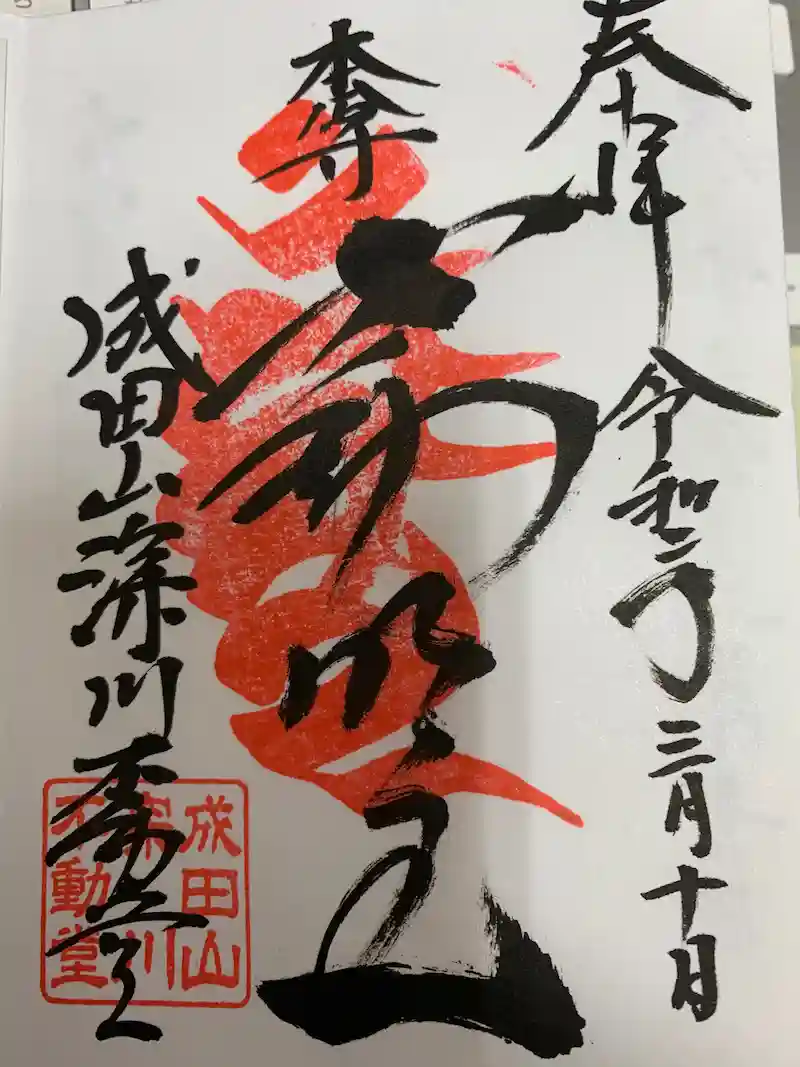 奉拝 令和二年三月十日
本尊
不動明王
成田山深川不動堂
成田山
深川
不動堂